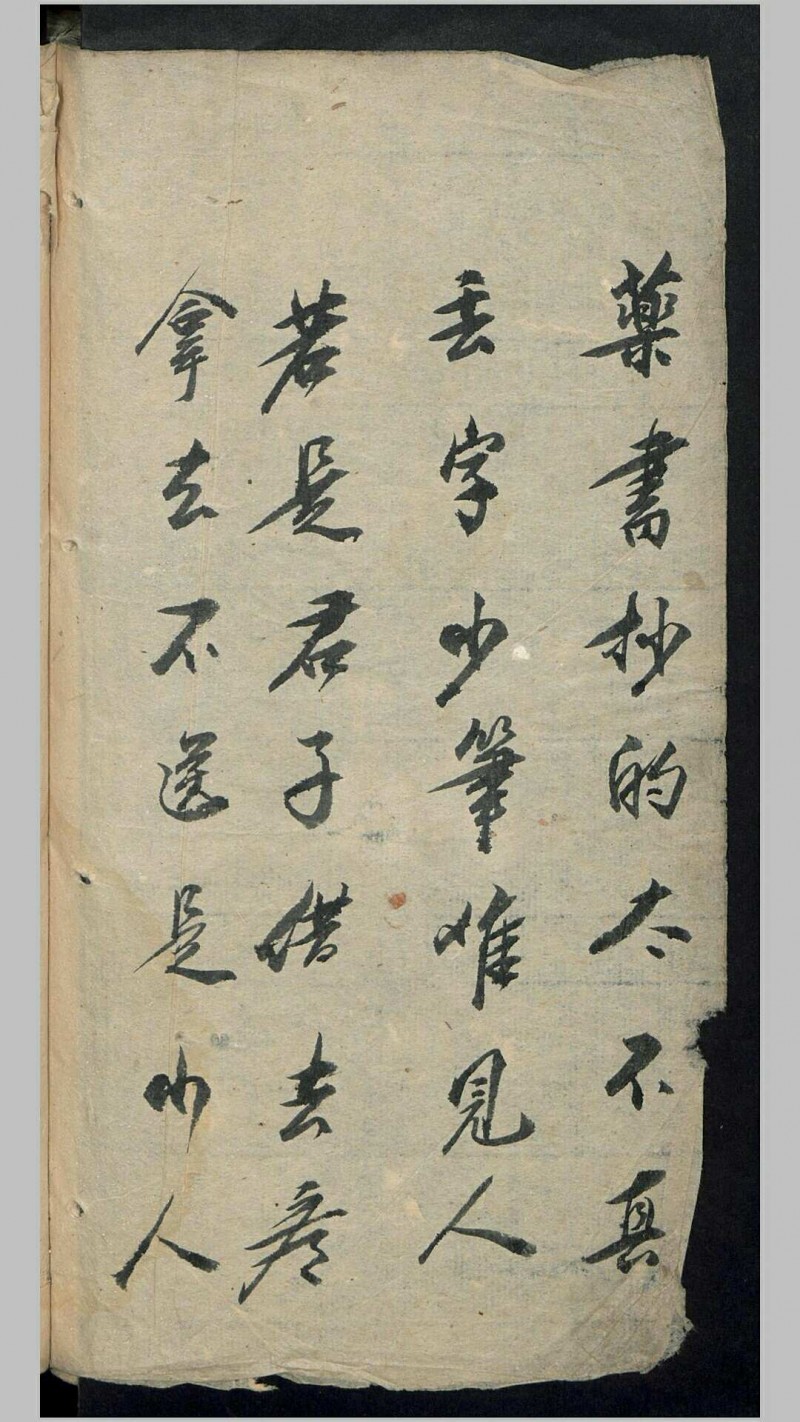 藥書抄的太不真
丢字少筆唯見人
若是君子借去彦
拿去不送是小人